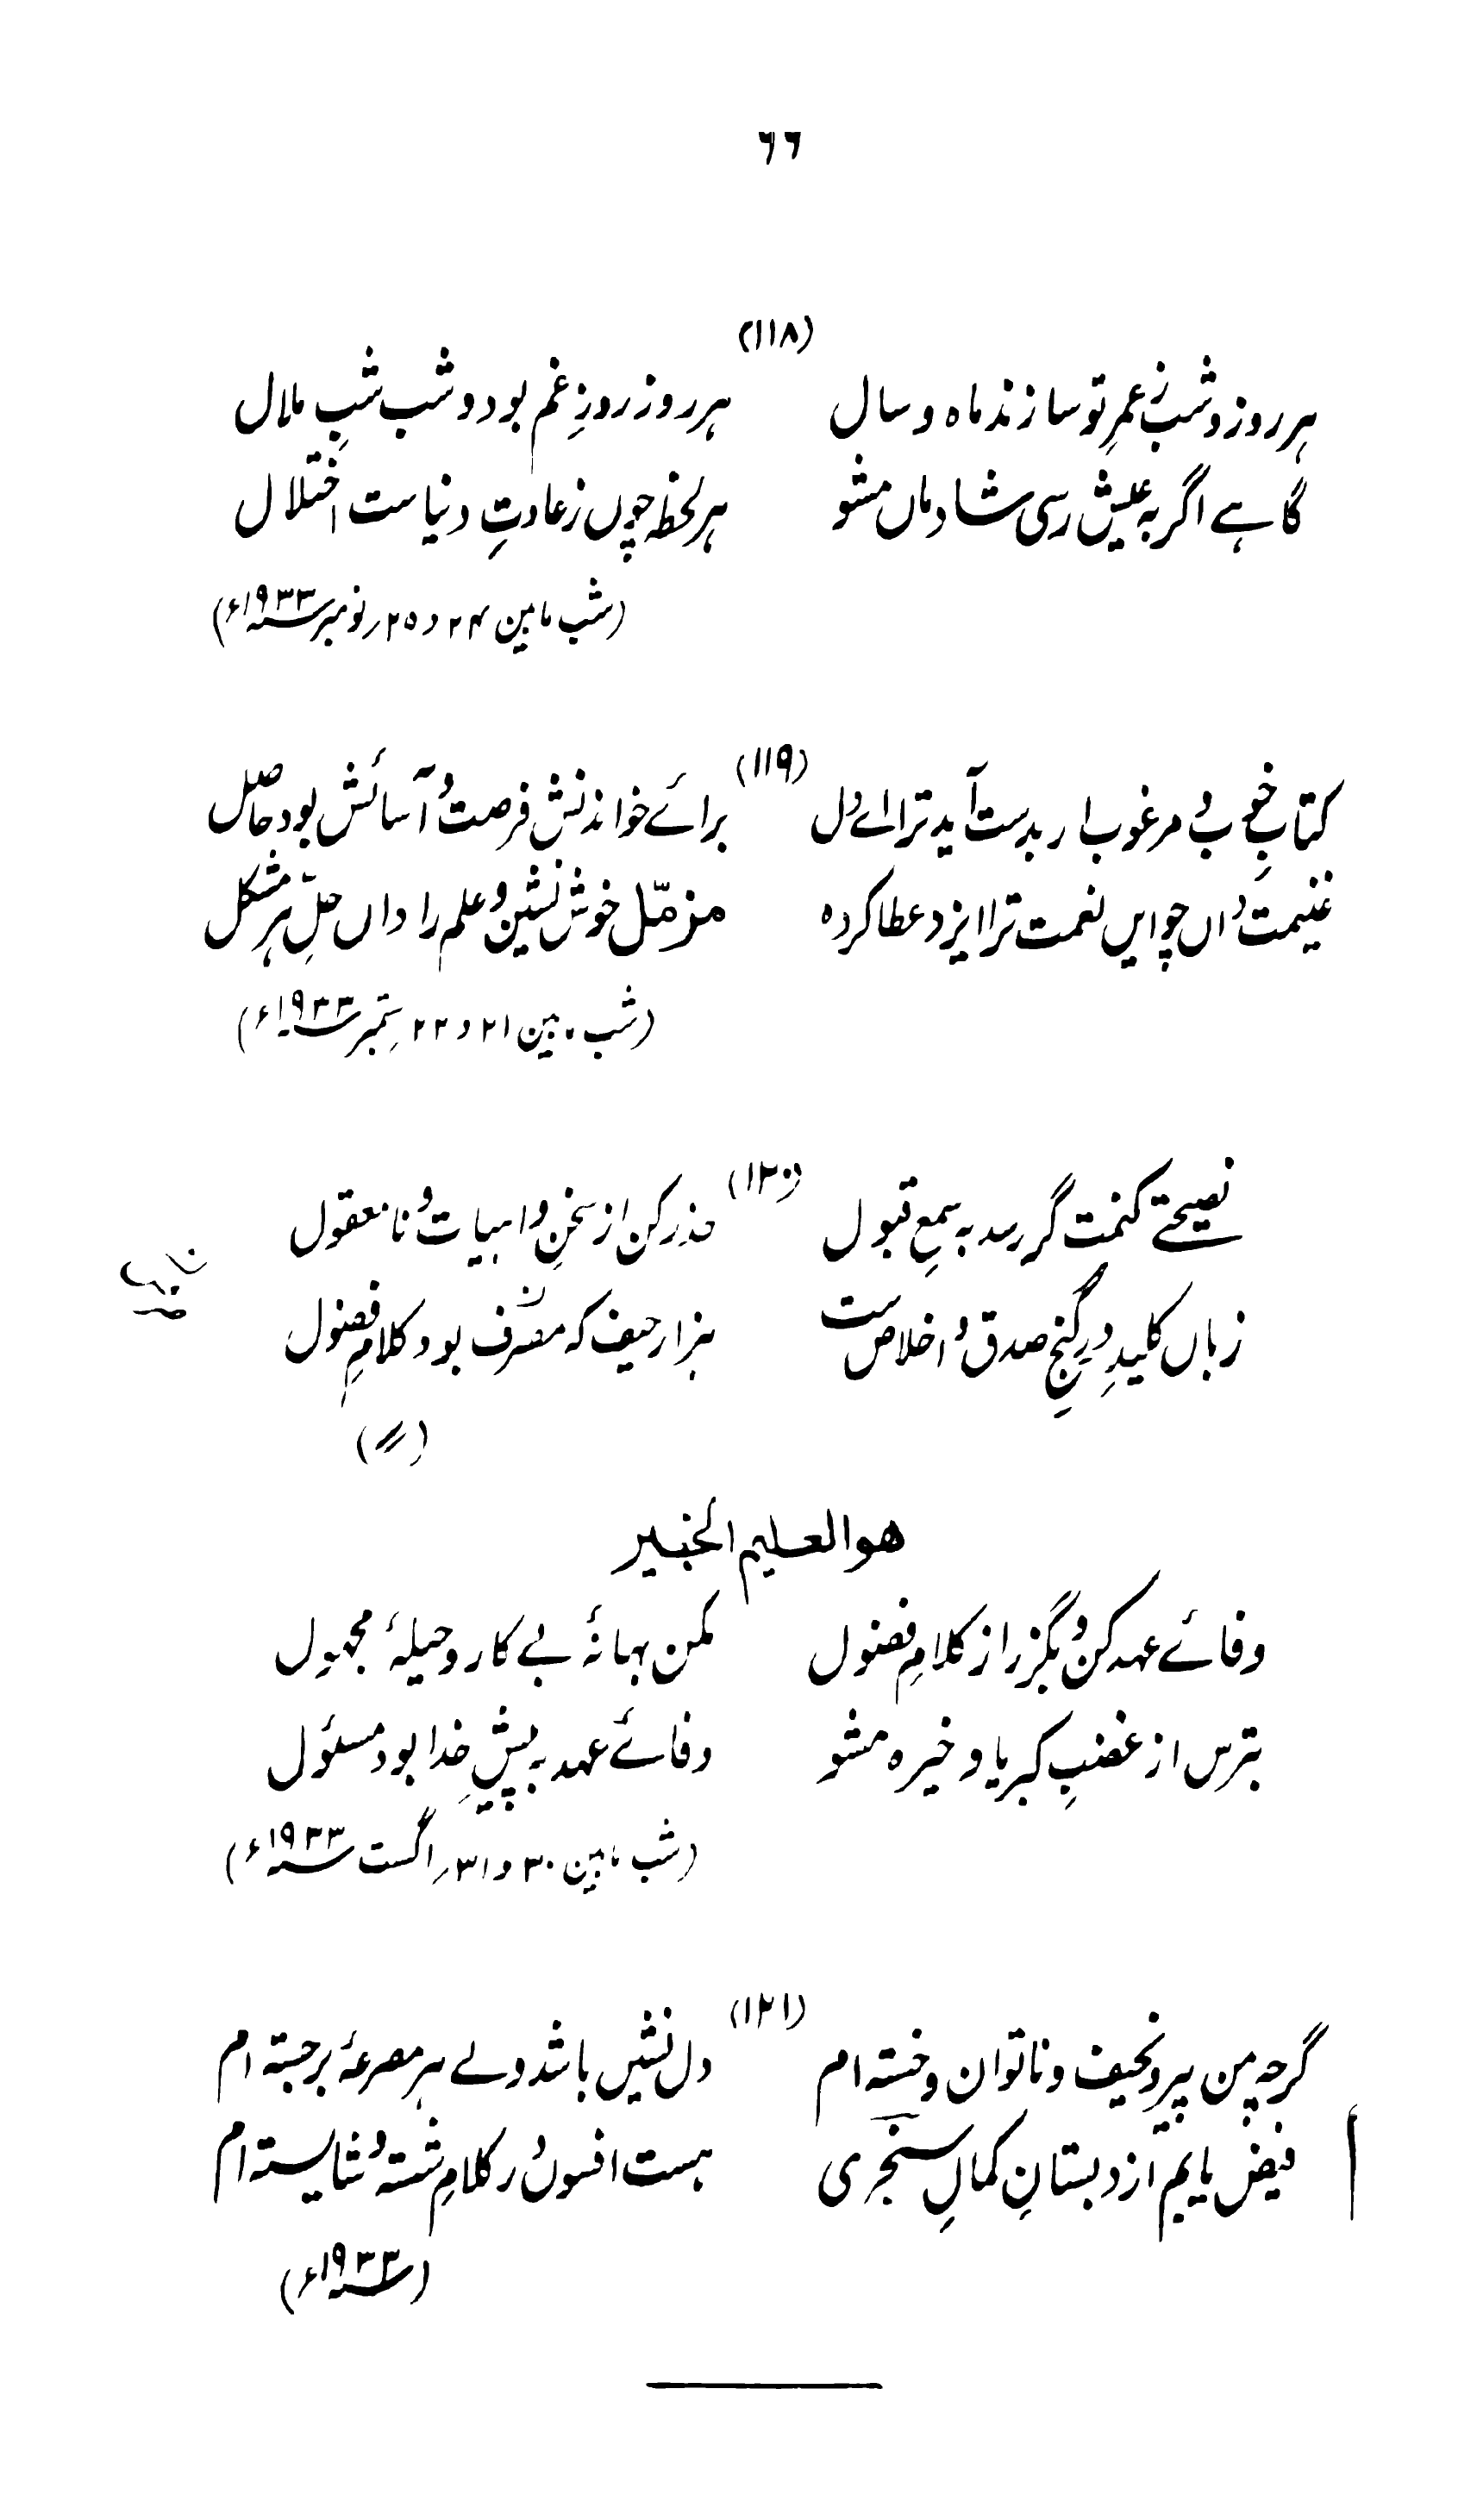 ۶۶
(۱۱۸)
ہر روز و شب ز عمرِ تو سازند ماہ و سال ہر روز روزِ غم بود و شب شبِ ملال
گاہے اگر بہ عیش رسی شادماں مشو ہر لحظہ چوں ز عادتِ دنیاست اختلال
(شب مابین ۲۴ و ۲۵ نومبر ۱۹۳۳ء)
(۱۱۹)
کتابِ خوب و مرغوب ار بدست آید ترا اے دل برائے خواندنش فرصت و آسائش بود حاصل
غنیمت داں چو ایں نعمت ترا ایزد عطا کردہ مزمّل خوش نشین و علم را داں حلِّ ہر مشکل
(شب مابین ۲۱ و ۲۲ ستمبر ۱۹۳۳ء)
(۱۲۰)
نصیحتے کنمت گر رسد بہ سمعِ قبول حذر کن از سخنِ واہیات و نامعقول
زباں کلیدِ درِ گنجِ صدق و اخلاص ست ہزار حیف کہ مصرف بود کلامِ فضول
(〃)
ھوالعلیم الخبیر
وفائے عہد کن و بگزر از کلامِ فضول مکن بہانۂ بے کار و حیلۂ مجہول
بترس از غضبِ کبریا و خیرہ مشو وفائے عہد بہ پیشِ خدا بود مسئول
(شب مابین ۳۰ و ۳۱ اگست ۱۹۳۳ء)
(۱۲۱)
گرچہ من پیر و نحیف و ناتوان و خستہ ام دل نشیں باشد ولے ہر مصرعۂ برجستہ ام
فیض یابم از دبستانِ کمالِ سنجری ہست افسوں در کلامِ شستہ و شایستہ ام
(۱۹۳۳ء)